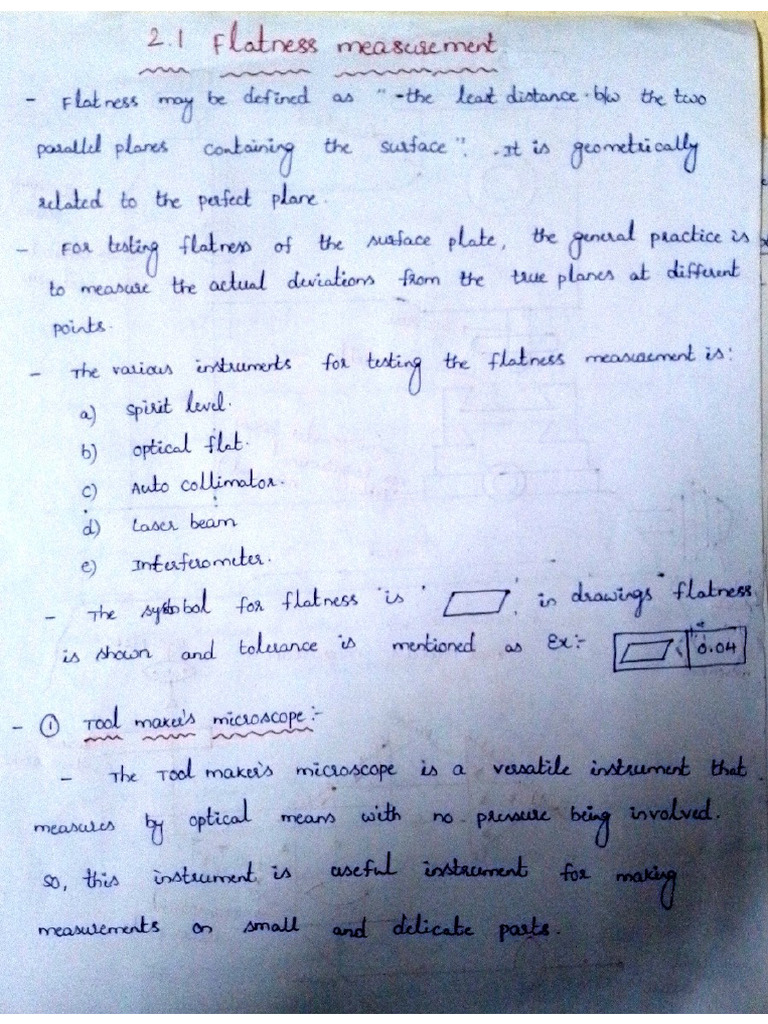 2.1 Flatness measurement
- Flatness may be defined as "the least distance b/w the two
parallel planes containing the surface". It is geometrically
related to the perfect plane.
- For testing flatness of the surface plate, the general practice is
to measure the actual deviations from the true planes at different
points.
- The various instruments for testing the flatness measurement is:
a) Spirit level.
b) optical flat.
c) Auto collimator.
d) Laser beam
e) Interferometer.
- The symbol for flatness is ' ' in drawings flatness
is shown and tolerance is mentioned as Ex:- 0.04
- ① Tool maker's microscope:-
- The Tool maker's microscope is a versatile instrument that
measures by optical means with no pressure being involved.
so, this instrument is useful instrument for making
measurements on small and delicate parts.